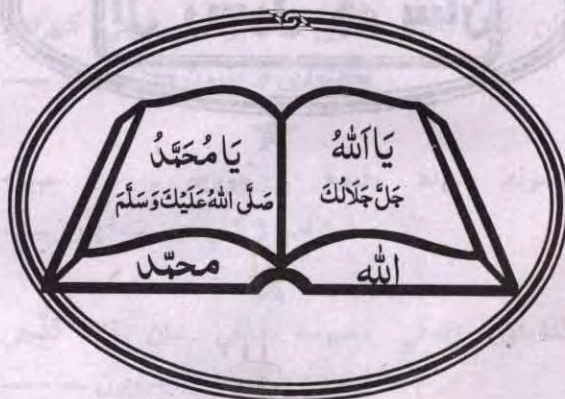 يَا اَللّٰهُ
جَلَّ جَلَالُكَ
يَا مُحَمَّدُ
صَلَّى اللّٰهُ عَلَيْكَ وَسَلَّمَ
الله
محمّد